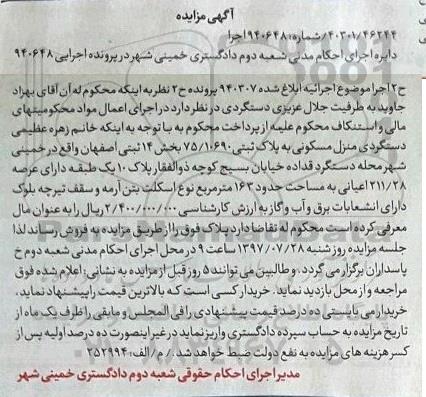 آگهی مزایده
۴۰۳۰۱/۴۶۲۴۴/شماره: ۹۴۰۶۴۸ اجرا
دایره اجرای احکام مدنی شعبه دوم دادگستری خمینی شهر در پرونده اجرایی ۹۴۰۶۴۸
ح۲ اجرا موضوع اجرائیه ابلاغ شده ۹۴۰۳۰۷ پرونده ح۲ نظر به اینکه محکوم له آن آقای بهزاد
جاوید به طرفیت جلال عزیزی دستگردی در نظر دارد در اجرای اعمال مواد محکومیتهای
مالی و استنکاف محکوم علیه از پرداخت محکوم به با توجه به اینکه خانم زهره عظیمی
دستگردی منزل مسکونی به پلاک ثبتی ۷۵/۱۰۶۹۰ بخش ۱۴ ثبتی اصفهان واقع در خمینی
شهر محله دستگرد قداده خیابان بسیج کوچه ذوالفقار پلاک ۱۰ یک طبقه دارای عرصه
۲۱۱/۲۸ اعیانی به مساحت حدود ۱۶۳ مترمربع نوع اسکلت بتن آرمه و سقف تیرچه بلوک
دارای انشعابات برق و آب و گاز به ارزش کارشناسی ۲/۴۰۰/۰۰۰/۰۰۰ ریال را به عنوان مال
معرفی کرده است محکوم له تقاضا دارد پلاک فوق را از طریق مزایده به فروش رساند لذا
جلسه مزایده روز شنبه ۱۳۹۷/۰۷/۲۸ ساعت ۹ در محل اجرای احکام مدنی شعبه دوم خ
پاسداران برگزار می گردد. و طالبین می توانند ۵ روز قبل از مزایده به نشانی: اعلام شده فوق
مراجعه و از محل بازدید نماید. خریدار کسی است که بالاترین قیمت را پیشنهاد نماید.
خریدار می بایستی ده درصد قیمت پیشنهادی را فی المجلس و مابقی را ظرف یک ماه از
تاریخ مزایده به حساب سپرده دادگستری واریز نماید در غیر اینصورت ده درصد اولیه پس از
کسر هزینه های مزایده به نفع دولت ضبط خواهد شد. / م / الف: ۲۵۲۹۹۴
مدیر اجرای احکام حقوقی شعبه دوم دادگستری خمینی شهر